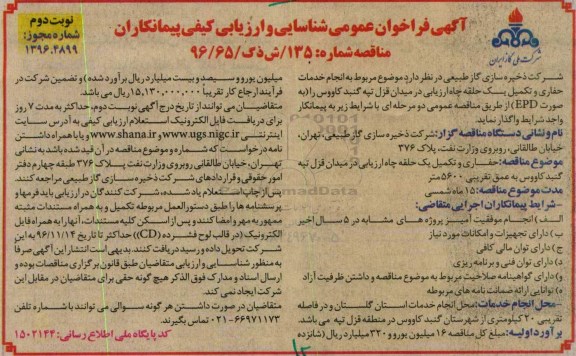 نوبت دوم
شماره مجوز:
۱۳۹۶.۴۸۹۹
آگهی فراخوان عمومی شناسایی و ارزیابی کیفی پیمانکاران
مناقصه شماره: ۱۳۵/ش ذگ/۹۶/۶۵
شرکت ملی گاز ایران
شرکت ذخیره سازی گاز طبیعی در نظر دارد موضوع مربوط به انجام خدمات
حفاری و تکمیل یک حلقه چاه ارزیابی در میدان قزل تپه گنبد کاووس را (به
صورت EPD) از طریق مناقصه عمومی دو مرحله ای با شرایط زیر به پیمانکار
واجد شرایط واگذار نماید.
نام و نشانی دستگاه مناقصه گزار: شرکت ذخیره سازی گاز طبیعی، تهران،
خیابان طالقانی، روبروی وزارت نفت، پلاک ۳۷۶
موضوع مناقصه: حفاری و تکمیل یک حلقه چاه ارزیابی در میدان قزل تپه
گنبد کاووس به عمق تقریبی ۵۶۰۰ متر
مدت موضوع مناقصه: ۱۵ ماه شمسی
-شرایط پیمانکاران اجرایی متقاضی:
الف) انجام موفقیت آمیز پروژه های مشابه در ۵ سال اخیر
ب) دارای تجهیزات و امکانات مورد نیاز
ج) دارای توان مالی کافی
د) دارای توان فنی و برنامه ریزی
و) دارای گواهینامه صلاحیت مربوط به موضوع مناقصه و داشتن ظرفیت آزاد
ه) توانایی ارائه ضمانت نامه های مربوطه
-محل انجام خدمات: محل انجام خدمات استان گلستان و در فاصله
تقریبی ۲۰ کیلومتری از شهرستان گنبد کاووس در منطقه قزل تپه می باشد.
برآورد اولیه: مبلغ کل مناقصه ۱۶ میلیون یورو و ۳۲۰ میلیارد ریال (شانزده
میلیون یورو و سیصد و بیست میلیارد ریال برآورد شده) و تضمین شرکت در
فرآیند ارجاع کار تقریباً ۱۵,۱۳۰,۰۰۰,۰۰۰ ریال می باشد.
متقاضیان می توانند از تاریخ درج آگهی نوبت دوم، حداکثر به مدت ۷ روز
برای دریافت فایل الکترونیک استعلام ارزیابی کیفی به آدرس سایت
اینترنتی www.ugs.nigc.ir و www.shana.ir و یا با همراه داشتن
نامه درخواست که شماره و موضوع مناقصه در آن قید شده باشد به نشانی
تهران، خیابان طالقانی روبروی وزارت نفت، پلاک ۳۷۶ طبقه چهارم دفتر
امور حقوقی و قراردادهای شرکت ذخیره سازی گاز طبیعی مراجعه کنند.
پس از چاپ استعلام یاد شده، شرکت کنندگان در ارزیابی باید فرمها و
پرسشنامه ها را طبق دستورالعمل مربوطه تکمیل و به همراه مستندات مثبته
ممهور به مهر و امضا کنند و پس از اسکن کلیه مستندات، آنها را به همراه فایل
الکترونیک (در قالب لوح فشرده (CD)) حداکثر تا تاریخ ۹۶/۱۱/۱۴ به این
شرکت تحویل داده و رسید دریافت کنند. بدیهی است انتشار این آگهی صرفا
به منظور شناسایی و ارزیابی متقاضیان طبق قانون برگزاری مناقصات بوده و
ارسال اسناد و مدارک فوق الذکر هیچ گونه حقی برای متقاضیان در مقابل این
شرکت ایجاد نمی کند.
متقاضیان در صورت داشتن هر گونه سوالی می توانند با شماره تلفن
۰۲۱-۶۶۹۷۱۱۷۳ تماس بگیرند.
کد پایگاه ملی اطلاع رسانی: ۱۵۰۲۱۴۴